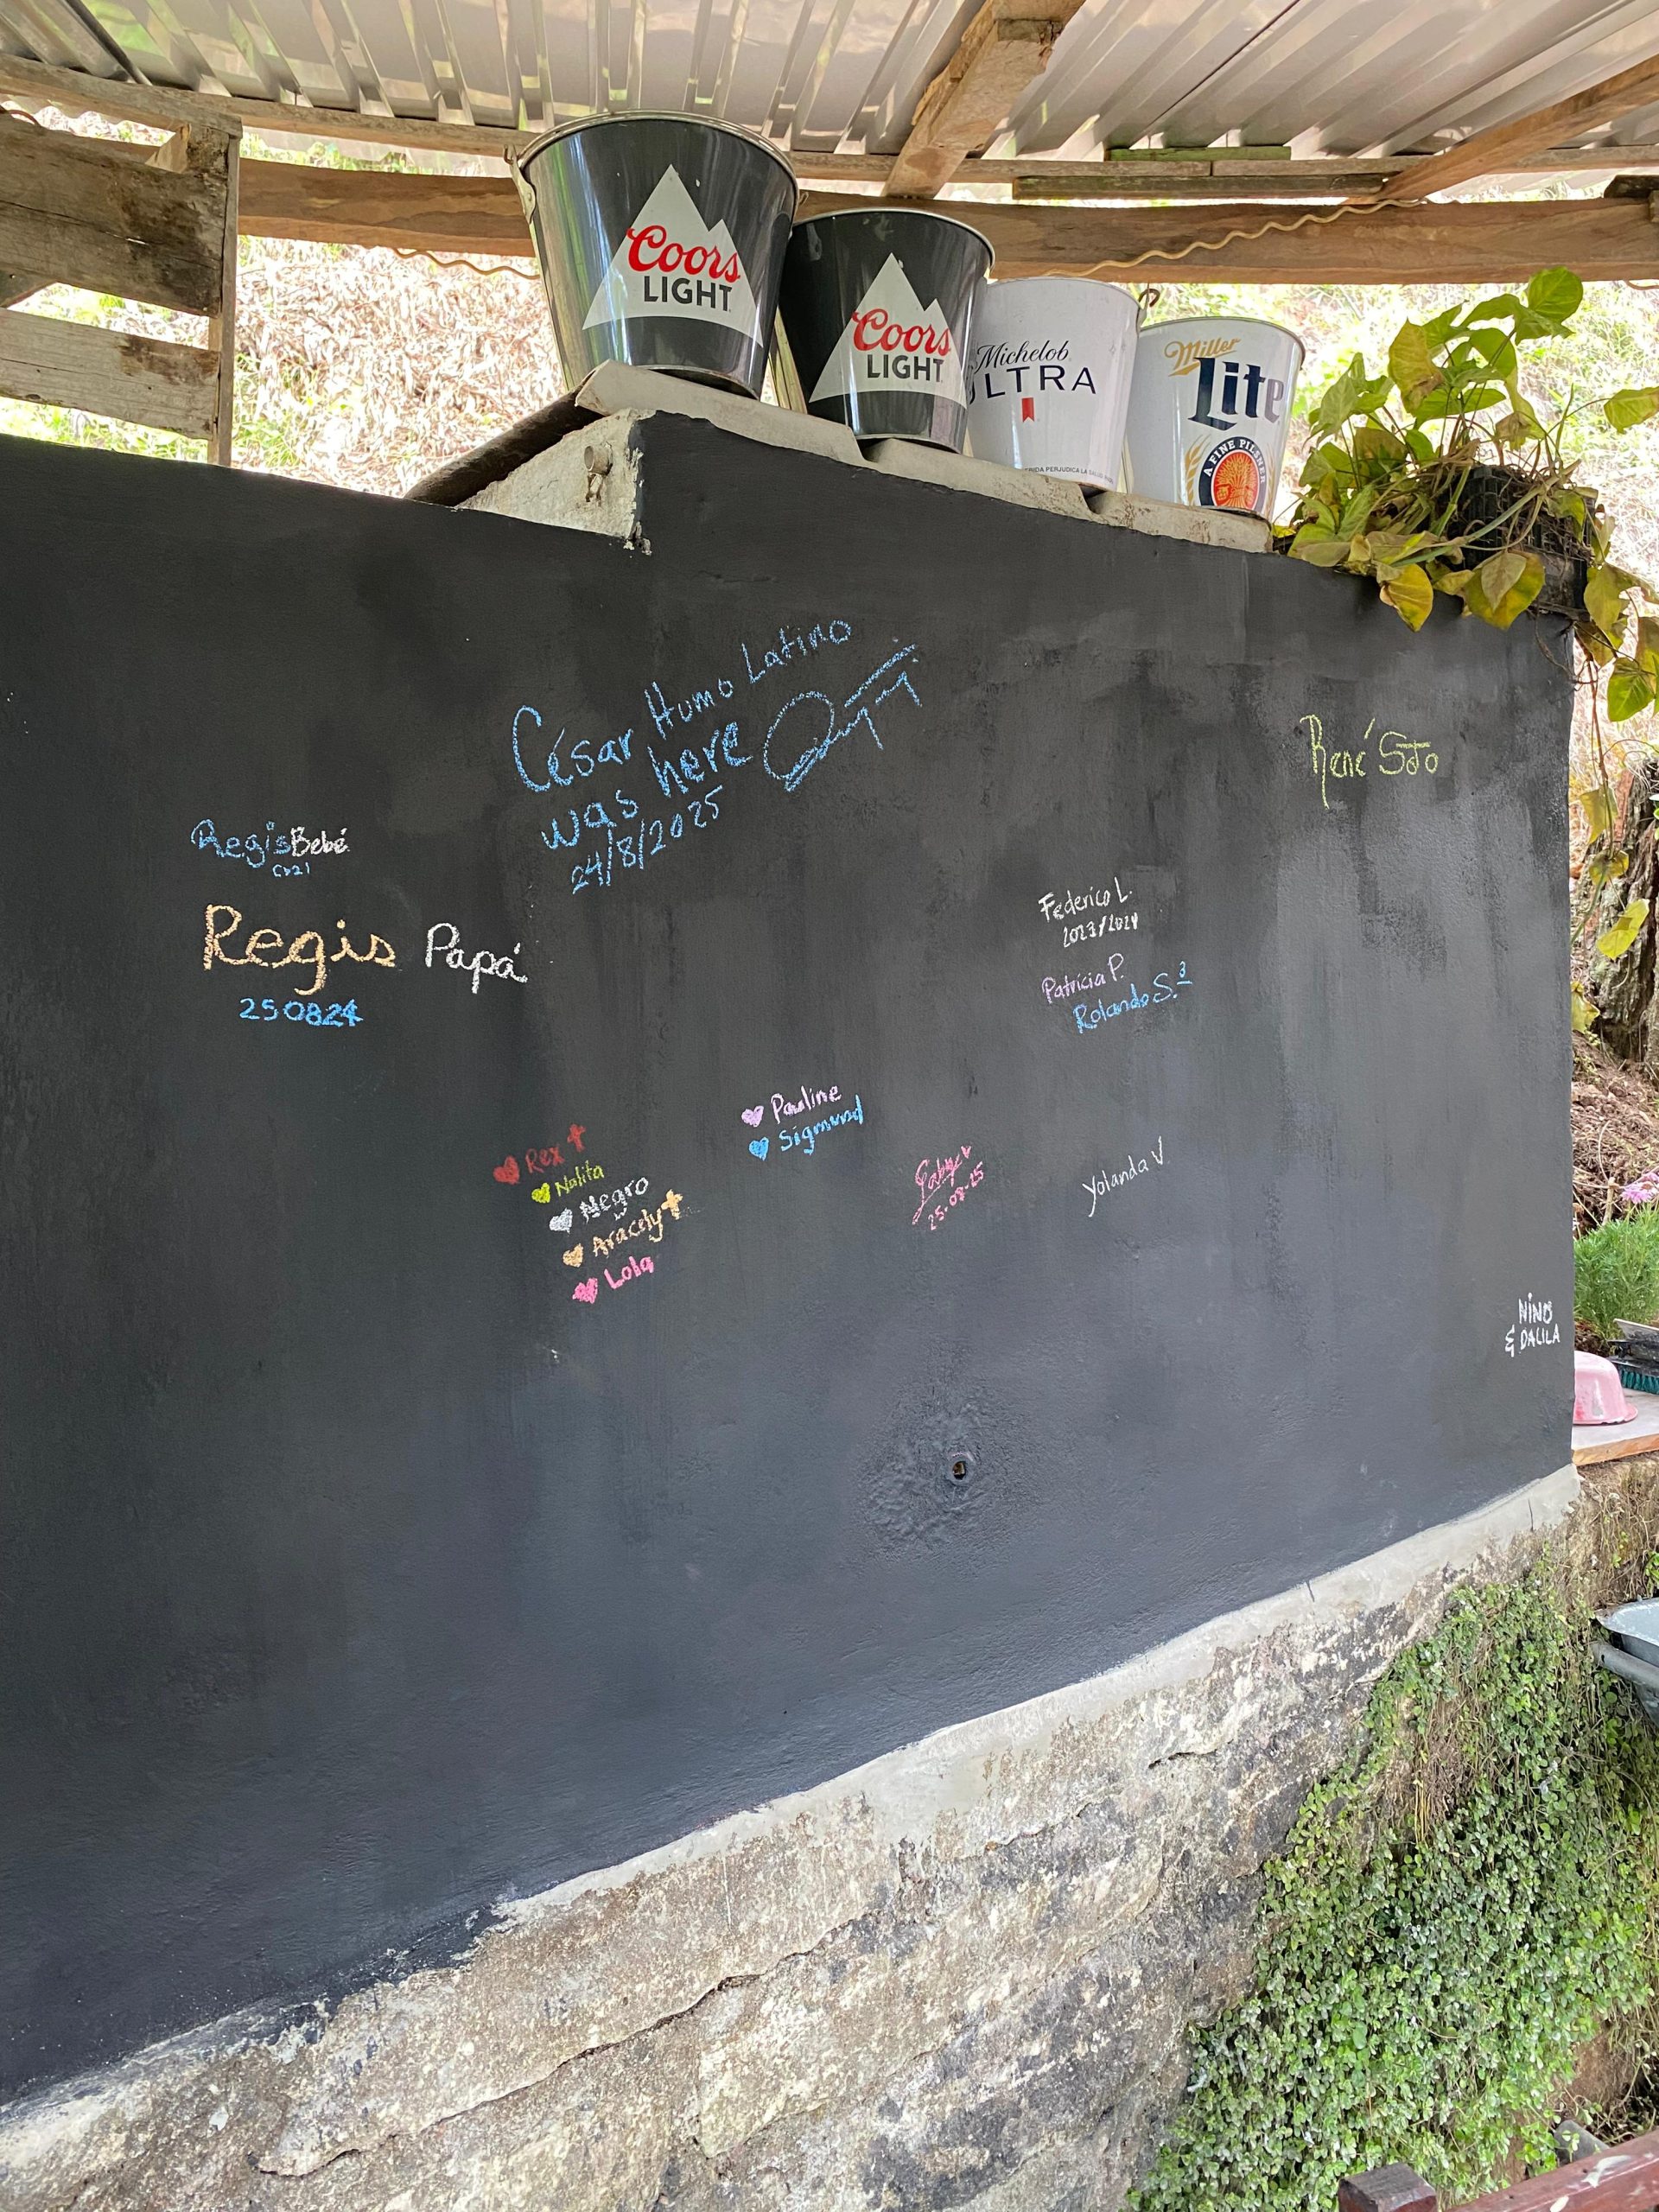 Coors
LIGHT
Coors
LIGHT
Michelob
ULTRA
Miller
Lite
A FINE PILSNER
César Humo Latino
was here
24/8/2025
René Soto
RegisBebé
Regis Papá
250824
Federico L.
2023/2024
Patricia P.
Rolando S.³
Pauline
Sigmund
Rex
Nalita
Negro
Aracely
Lola
Gaby
25-08-25
Yolanda V.
NINO
& DALILA